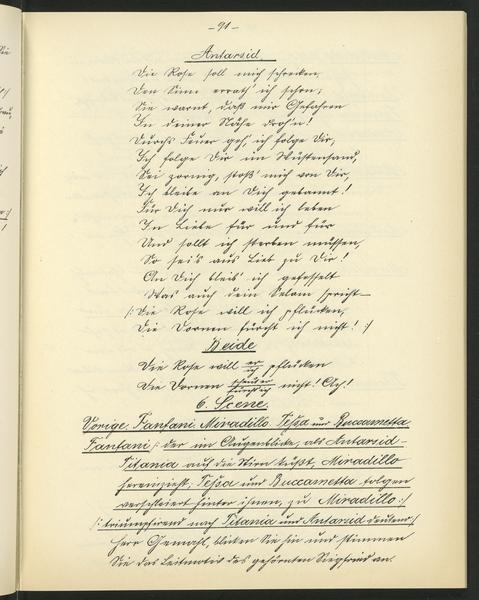 - 91 -
Antarsid.
Die Rose soll mich schrecken,
Den Sinn errath' ich schon;
Sie warnt, daß mir Gefahren
In deiner Nähe droh'n!
Durch's Feuer geh' ich folge Dir,
Ich folge Dir im Wüstensand,
Sei zornig, stoß' mich von Dir,
Ich bleibe an Dich gebannt!
Für Dich nur will ich leben
In Liebe für und für
Und sollt ich sterben müssen,
So sei's aus Lieb zu Dir!
An Dich bleib' ich gefesselt
Was auch dein Selam spricht—
/: Die Rose will ich pflücken,
Die Dornen fürcht ich nicht! :/
Beide
Die Rose will er ich pflücken
Die Dornen scheut er fürcht ich nicht! Ach!
6. Scene.
Vorige. Fanfani Miradillo. Tessa und Buccametta
Fanfani /: der im Augenblicke, als Antarsid
Titania auf die Stirn küßt, Miradillo
hereinzieht, Tessa und Buccametta folgen
verschleiert hinter ihnen, zu Miradillo :/
/: triumphirend nach Titania und Antarsid deutend :/
Herr Gemahl, blicken Sie hin und stimmen
Sie das Leitmotiv des gehörnten Siegfried an.